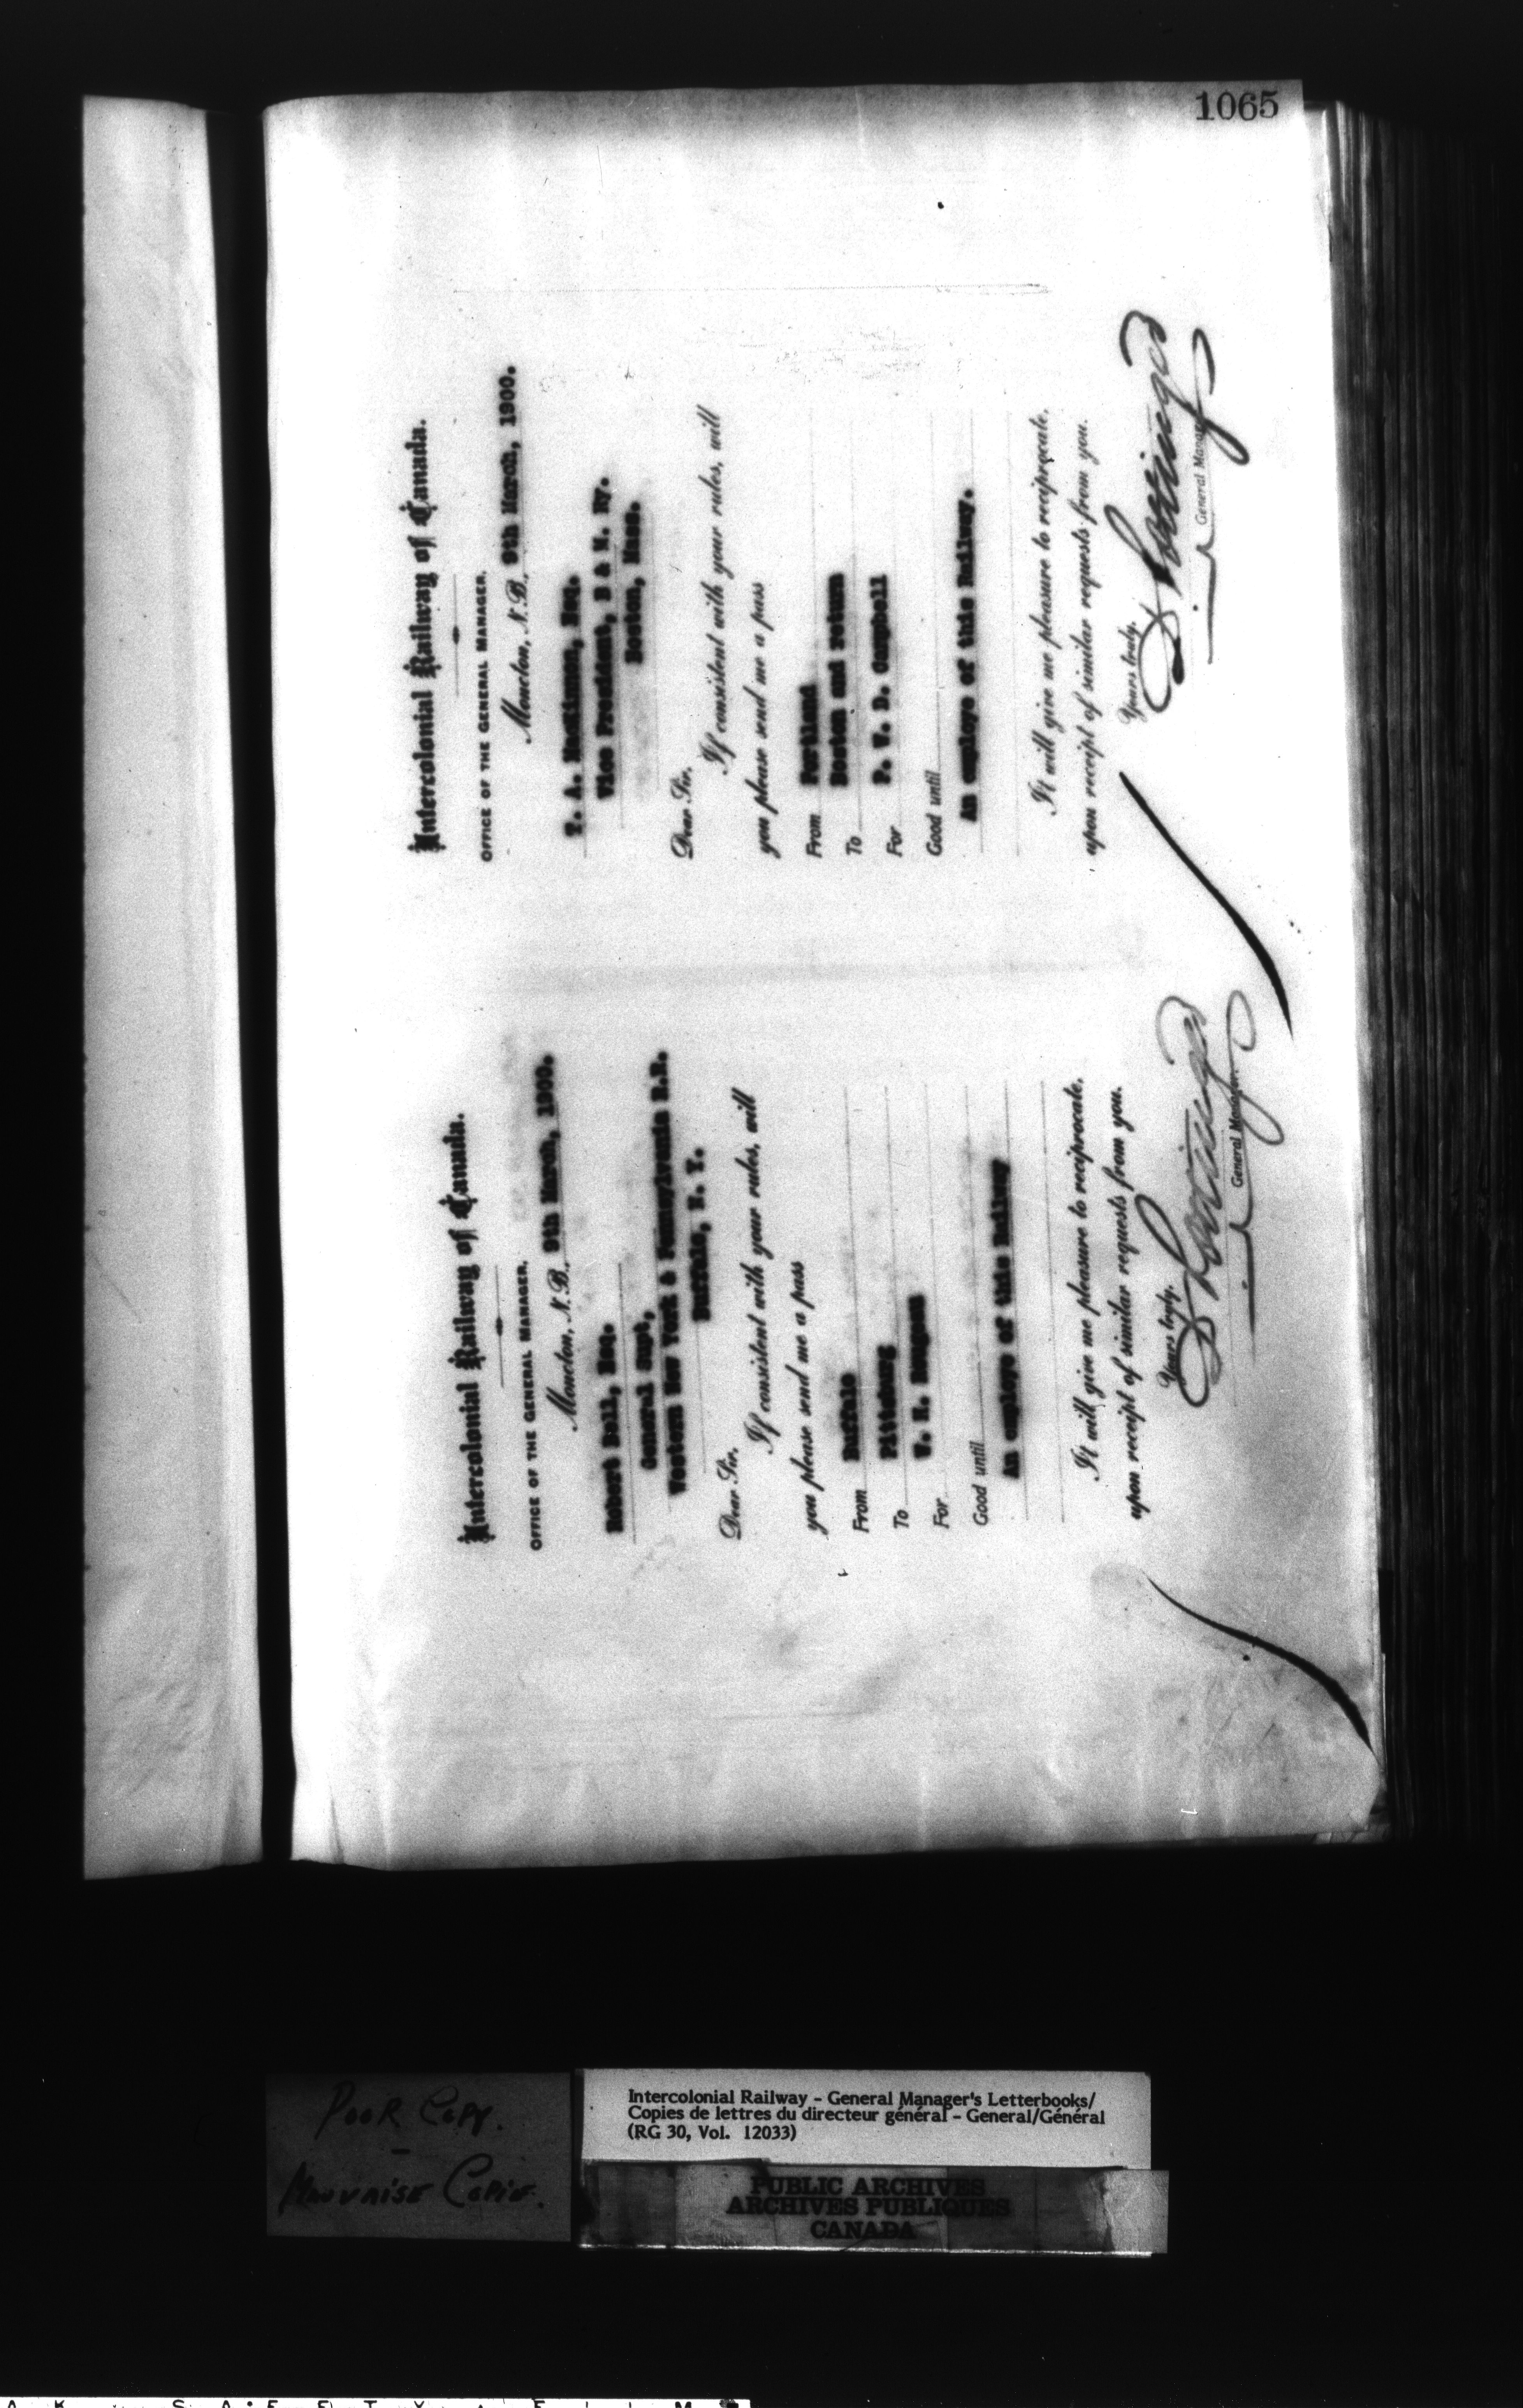 1065
Intercolonial Railway of Canada.
OFFICE OF THE GENERAL MANAGER.
Moncton, N.B., 9th March, 1900.
Robert Bell, Esq.
General Supt,
Western New York & Pennsylvania R.R.
Buffalo, N. Y.
Dear Sir,
If consistent with your rules, will
you please send me a pass
From Buffalo
To Pittsburg
For
Good until
An employe of this Railway
It will give me pleasure to reciprocate,
upon receipt of similar requests from you.
Yours truly,
General Manager.
Intercolonial Railway of Canada.
OFFICE OF THE GENERAL MANAGER.
Moncton, N.B., 9th March, 1900.
T. A. MacKinnon, Esq.
Vice President, B & M. Ry.
Boston, Mass.
Dear Sir,
If consistent with your rules, will
you please send me a pass
From Portland
To Boston and return
For P. V. D. Campbell
Good until
An employe of this Railway.
It will give me pleasure to reciprocate,
upon receipt of similar requests from you.
Yours truly,
General Manager
POOR COPY.
-
MAUVAISE COPIE.
Intercolonial Railway - General Manager's Letterbooks/
Copies de lettres du directeur général - General/Général
(RG 30, Vol. 12033)
PUBLIC ARCHIVES
ARCHIVES PUBLIQUES
CANADA